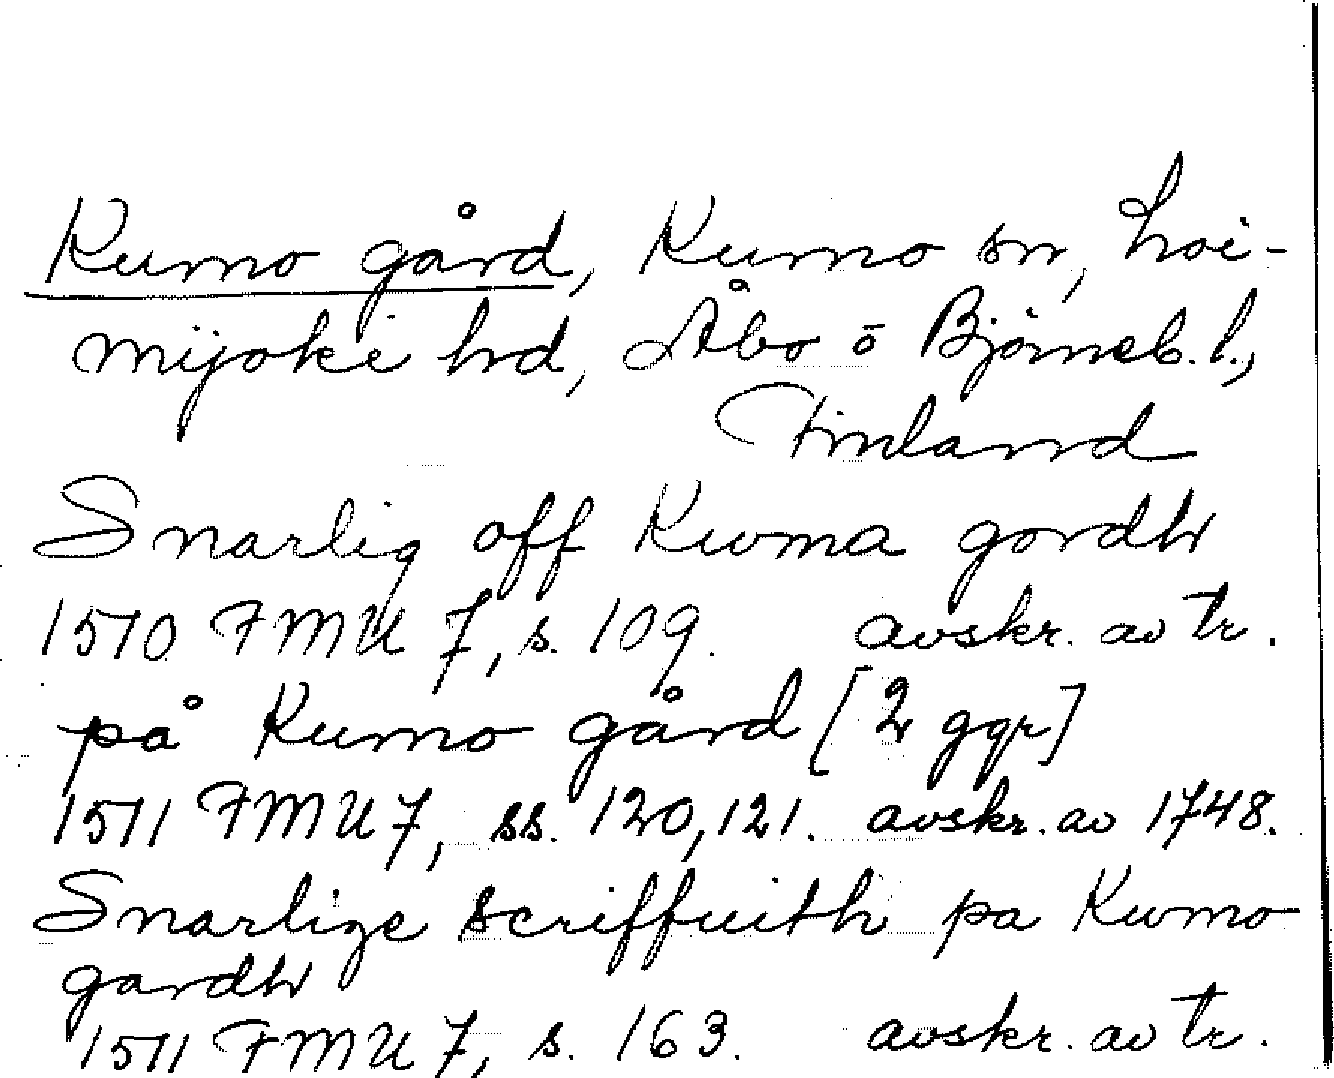 Kumo gård, Kumo sn, Loi-
mijoki hd, Åbo o Björneb. l.,
Finland
Snarlig off Kwma gordh
1510 FMU 7, s. 109. avskr. av tr.
på Kumo gård [2 ggr]
1511 FMU 7, ss. 120, 121. avskr. av 1748.
Snarlige scriffuith pa Kwmo
gardh
1511 FMU 7, s. 163. avskr. av tr.